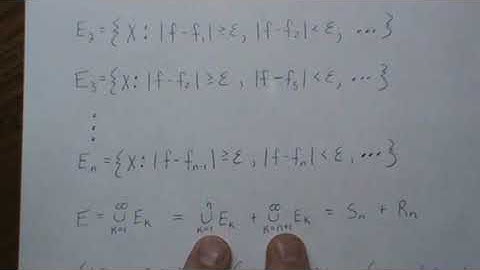 E₂ = {x : |f-f₁| ≥ ε, |f-f₂| < ε, ...}
E₃ = {x : |f-f₂| ≥ ε, |f-f₃| < ε, ...}
⋮
Eₙ = {x : |f-fₙ₋₁| ≥ ε, |f-fₙ| < ε, ...}
E = ∪_{k=1}^{∞} Eₖ = ∪_{k=1}^{n} Eₖ + ∪_{k=n+1}^{∞} Eₖ = Sₙ + Rₙ